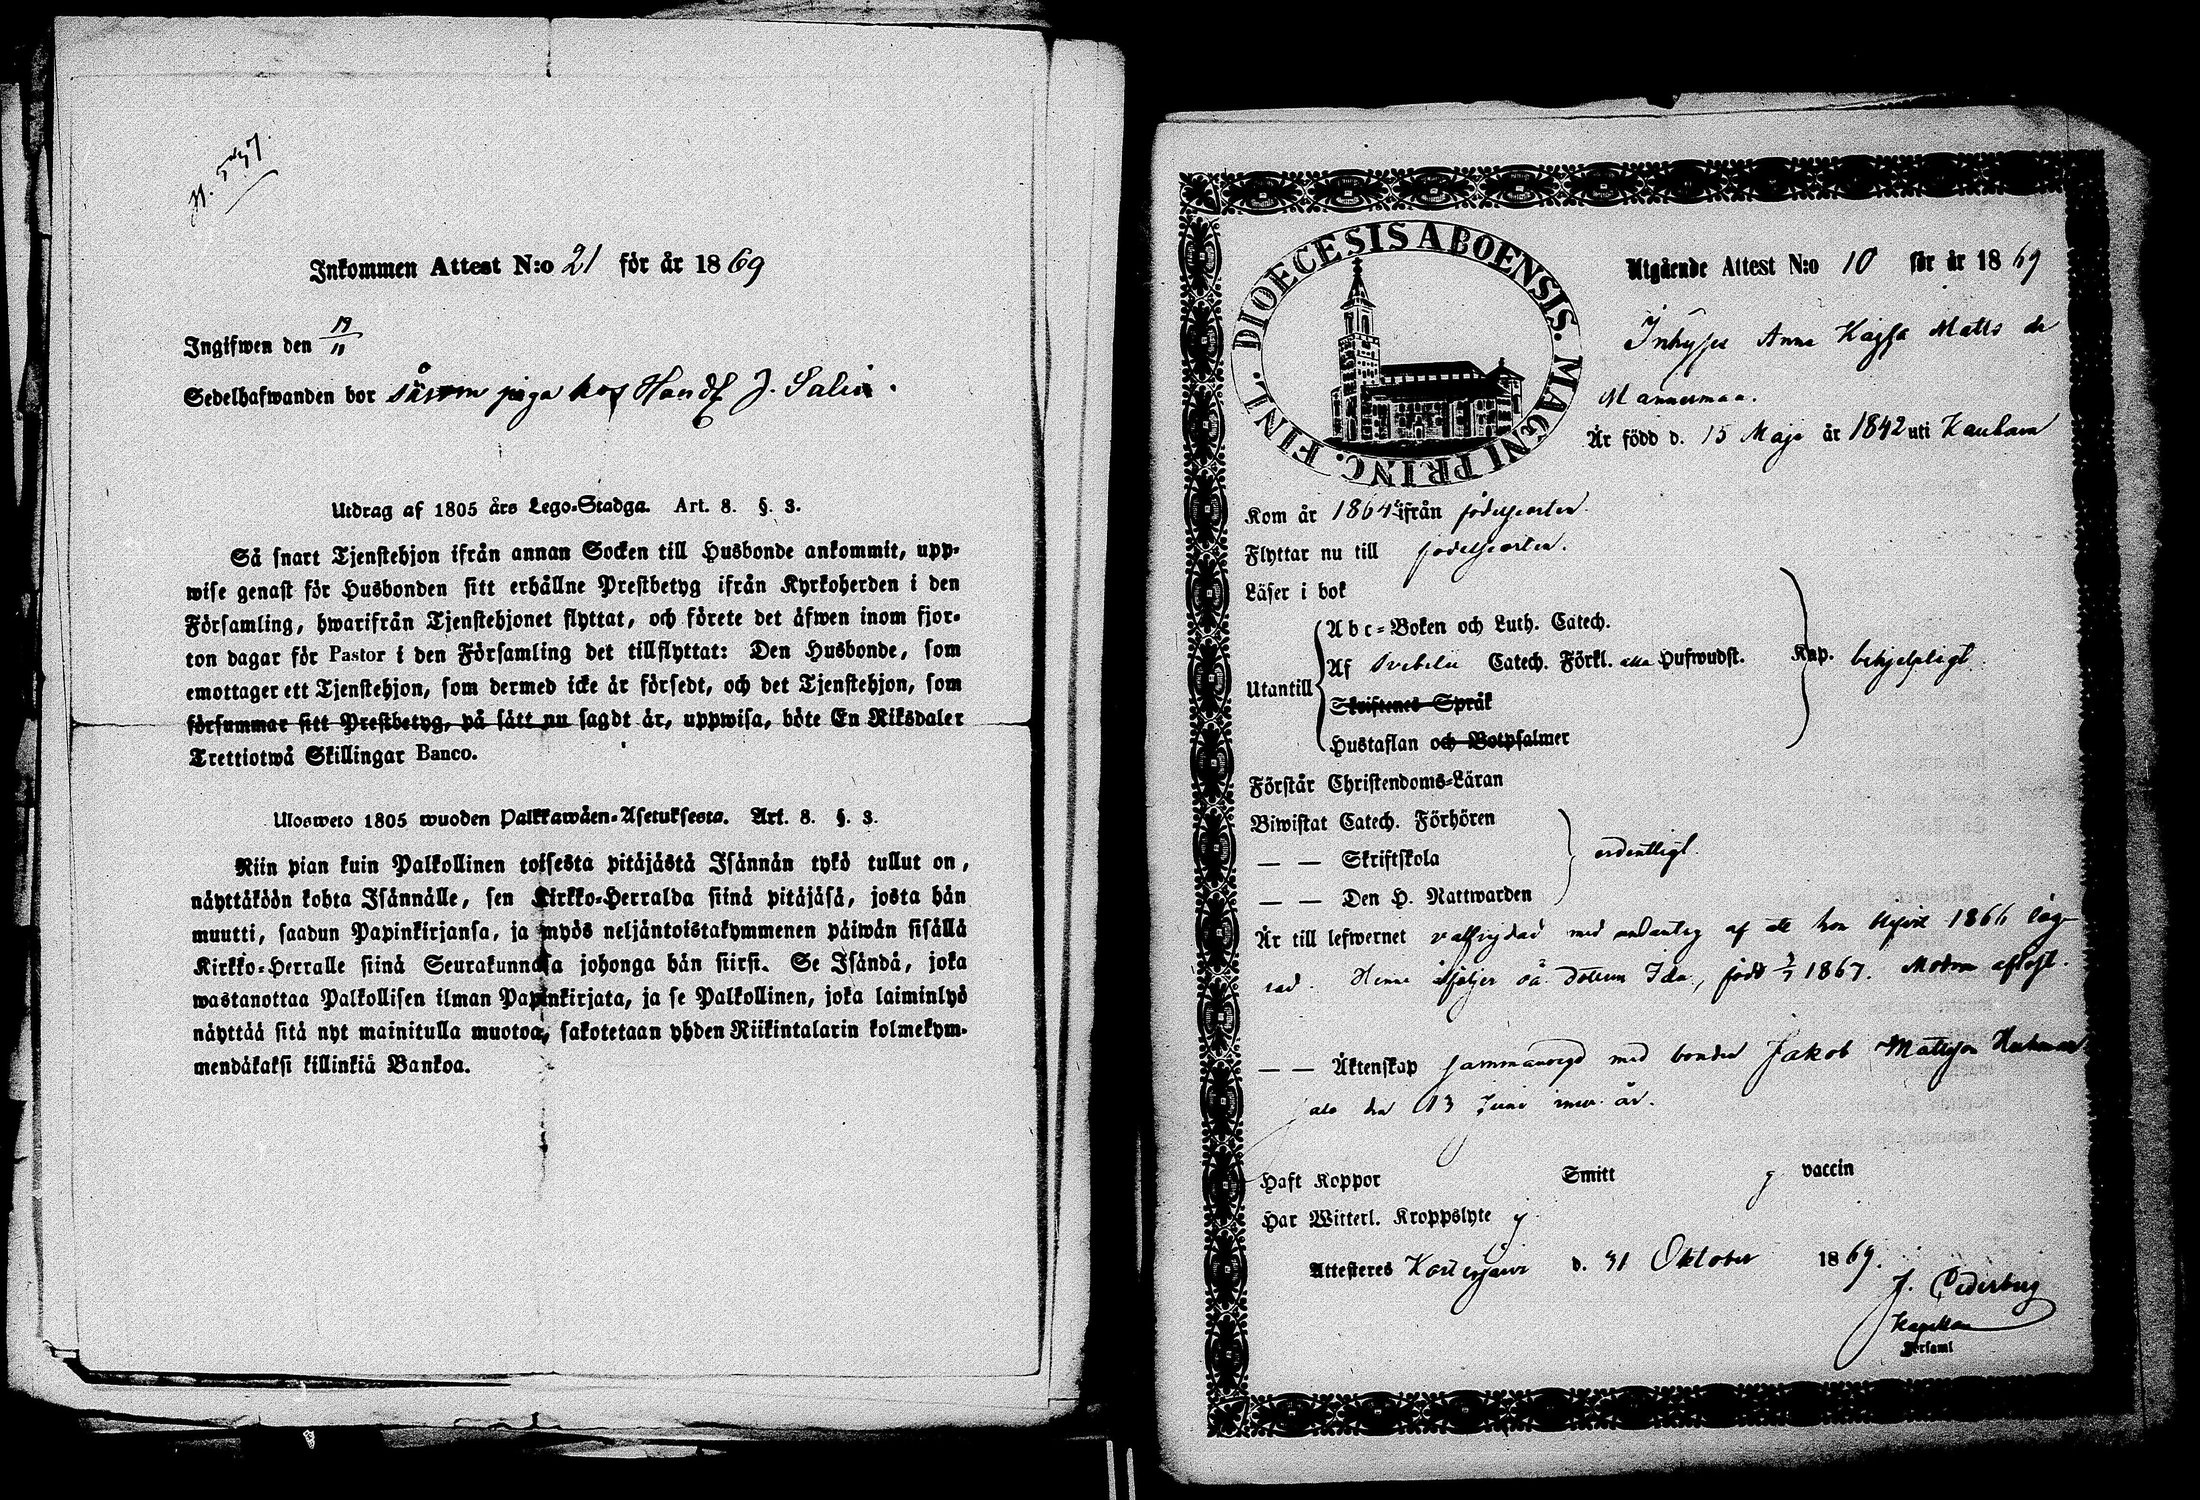 Inkommen Attest N:o 21 för år 1869
Ingifwen den 19/11
Sedelhafwanden bor såsom piga hos Handl J. Salin.
Utdrag af 1805 års Lego-Stadga. Art. 8. §. 3.
Så snart Tjenstehjon ifrån annan Socken till Husbonde ankommit, upp-
wise genast för Husbonden sitt erhållne Prestbetyg ifrån Kyrkoherden i den
Församling, hwarifrån Tjenstehjonet flyttat, och förete det äfwen inom fjor-
ton dagar för Pastor i den Församling det tillflyttat: Den Husbonde, som
emottager ett Tjenstehjon, som dermed icke är försedt, och det Tjenstehjon, som
försummar sitt Prestbetyg, på sätt nu sagdt är, uppwisa, böte En Riksdaler
Trettiotwå Skillingar Banco.
Ulosweto 1805 wuoden Palkkawäen-Asetuksesta. Art. 8. §. 3.
Niin pian kuin Palkollinen toisesta pitäjästä Isännän tykö tullut on,
näyttäköön kohta Isännälle, sen Kirkko-Herralda siinä pitäjäsä, josta hän
muutti, saadun Papinkirjansa, ja myös neljäntoistakymmenen päiwän sisällä
Kirkko-Herralle siinä Seurakunnasa johonga hän siirsi. Se Isändä, joka
wastanottaa Palkollisen ilman Papinkirjata, ja se Palkollinen, joka laiminlyö
näyttää sitä nyt mainitulla muotoa, sakotetaan yhden Riikintalarin kolmekym-
mendäkaksi killinkiä Bankoa.
DIOECESIS ABOENSIS. MAGNI PRINC. FINL.
Utgående Attest N:o 10 för år 1869
Inhyses Anna Kajsa Matts dr
Mannermaa.
Är född d. 15 Maji år 1842 uti Kauhava
Kom år 1864 ifrån födelseorten
Flyttar nu till födelseorten.
Läser i bok
Utantill
Abc-Boken och Luth. Catech.
Af Svebelii Catech. Förkl. alla Hufwudst. Kap. behjelpligt
Skriftenes Språk
Hustaflan och Botpsalmer
Förstår Christendoms-Läran
Biwistat Catech. Förhören
— — Skriftskola ordentligt
— — Den H. Nattwarden
Är till lefwernet med undantag af att hon 1866 läg-
rad. Henne åtföljer oä dottern Ida, född 3/7 1867. Modren aflöst.
— — Äktenskap sammanvigd med bonden Jakob Mattsson
den 13 Juni innev. år.
Haft Koppor Smitt vaccin
Har Witterl. Kroppslyte
Attesteres Kortesjärvi d. 31 Oktober 1869.
J. Cederberg
Kapellan
Församl